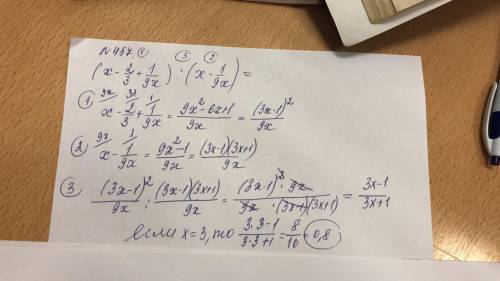 № 457. ①
③ ②
(x - 2/3 + 1/9x) : (x - 1/9x) =
① x^{9x} - 2/3^{3x} + 1/9x^{1} = 9x² - 6x + 1/9x = (3x-1)²/9x
② x^{9x} - 1/9x^{1} = 9x² - 1/9x = (3x-1)(3x+1)/9x
③ (3x-1)²/9x : (3x-1)(3x+1)/9x = (3x-1)² · 9x/9x · (3x-1)(3x+1) = 3x-1/3x+1
если x = 3, то 3·3-1/3·3+1 = 8/10 = 0,8